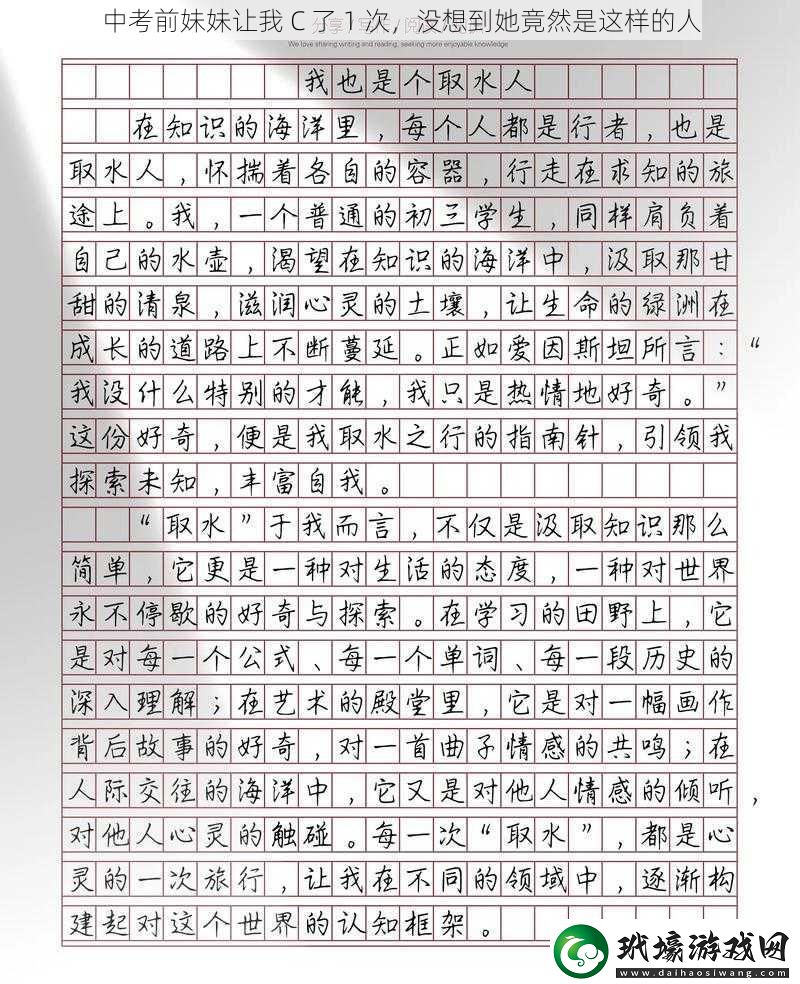 中考前妹妹让我 C 了 1 次，没想到她竟然是这样的人
We love sharing writing and reading, seeking more enjoyable knowledge
我也是个取水人
在知识的海洋里，每个人都是行者，也是
取水人，怀揣着各自的容器，行走在求知的旅
途上。我，一个普通的初三学生，同样肩负着
自己的水壶，渴望在知识的海洋中，汲取那甘
甜的清泉，滋润心灵的土壤，让生命的绿洲在
成长的道路上不断蔓延。正如爱因斯坦所言：“
我没什么特别的才能，我只是热情地好奇。”
这份好奇，便是我取水之行的指南针，引领我
探索未知，丰富自我。
“取水”于我而言，不仅是汲取知识那么
简单，它更是一种对生活的态度，一种对世界
永不停歇的好奇与探索。在学习的田野上，它
是对每一个公式、每一个单词、每一段历史的
深入理解；在艺术的殿堂里，它是对一幅画作
背后故事的好奇，对一首曲子情感的共鸣；在
人际交往的海洋中，它又是对他人情感的倾听，
对他人心灵的触碰。每一次“取水”，都是心
灵的一次旅行，让我在不同的领域中，逐渐构
建起对这个世界的认知框架。
玳壕游戏网
www.daihaosiwang.com